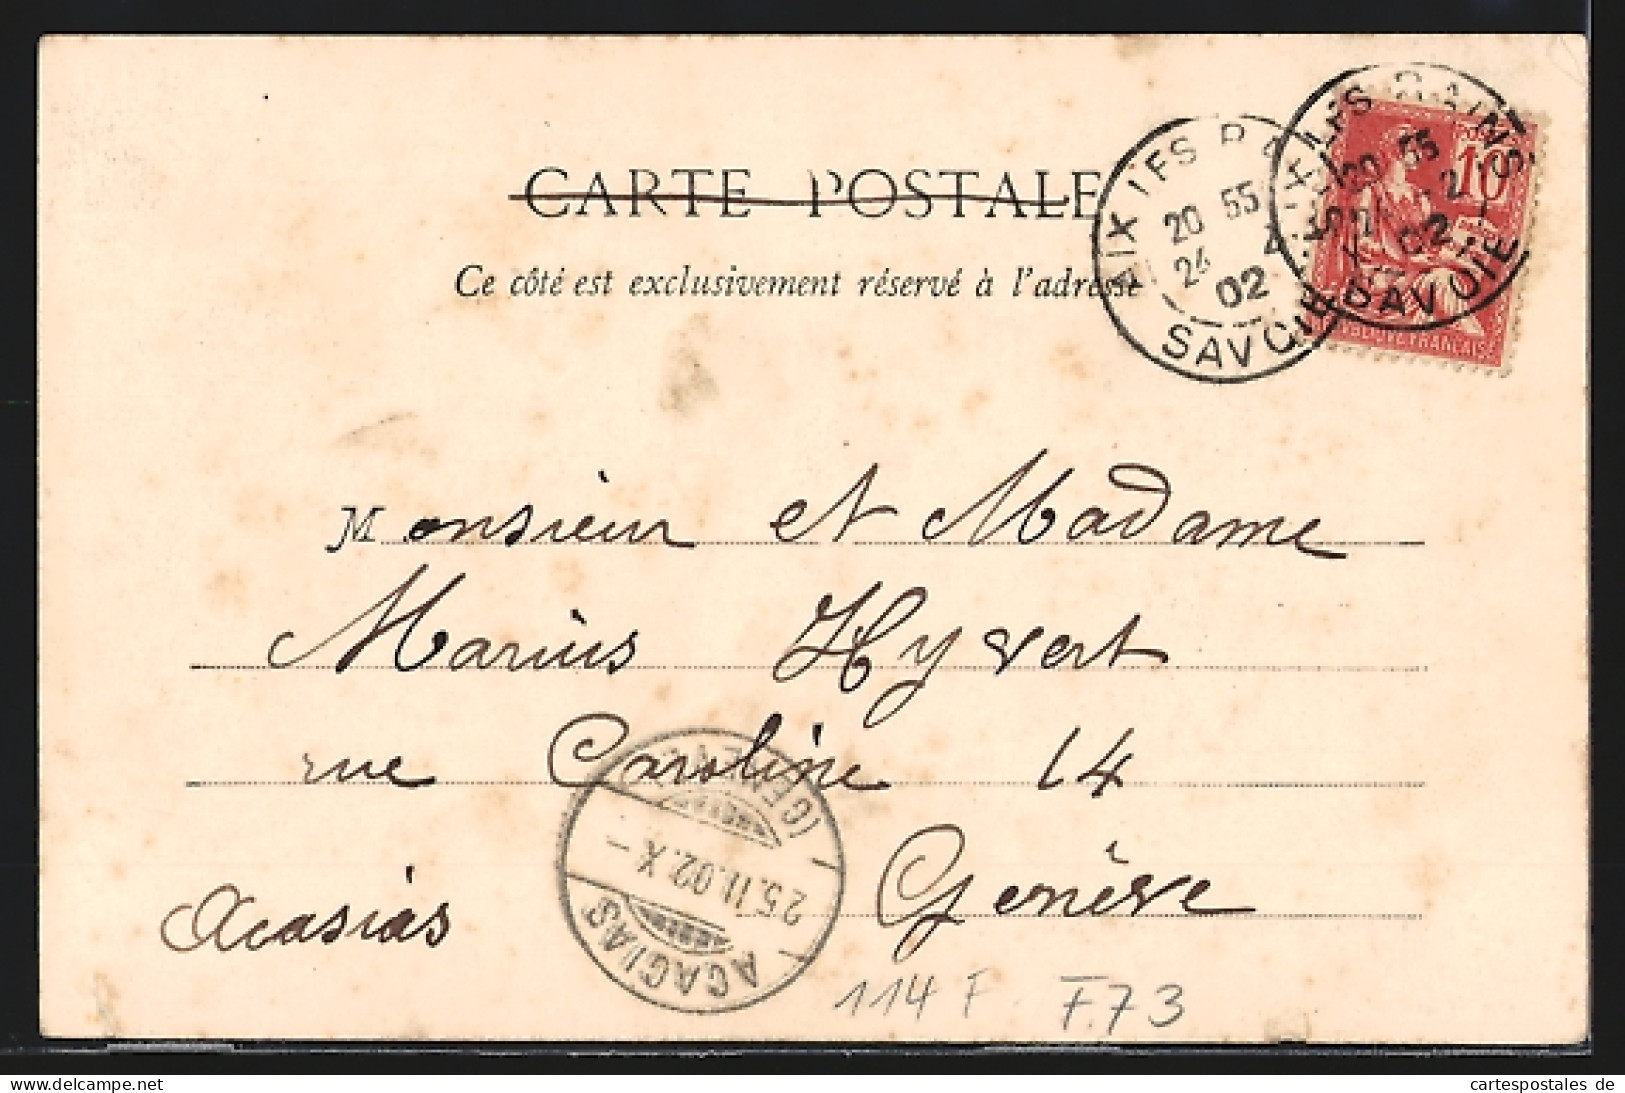 CARTE POSTALE
Ce côté est exclusivement réservé à l'adresse
AIX LES BAINS
20 55
24
02
SAVOIE
LES BAINS
20 55
02
SAVOIE
10
REPUBLIQUE FRANÇAISE
Monsieur et Madame
Marius Hyvert
rue Caroline 14
Genève
Acasias
(GENÈVE)
25.II.02.X–
ACACIAS
114 F
F.73
Uniquement sur delcampe.net
cartespostales de